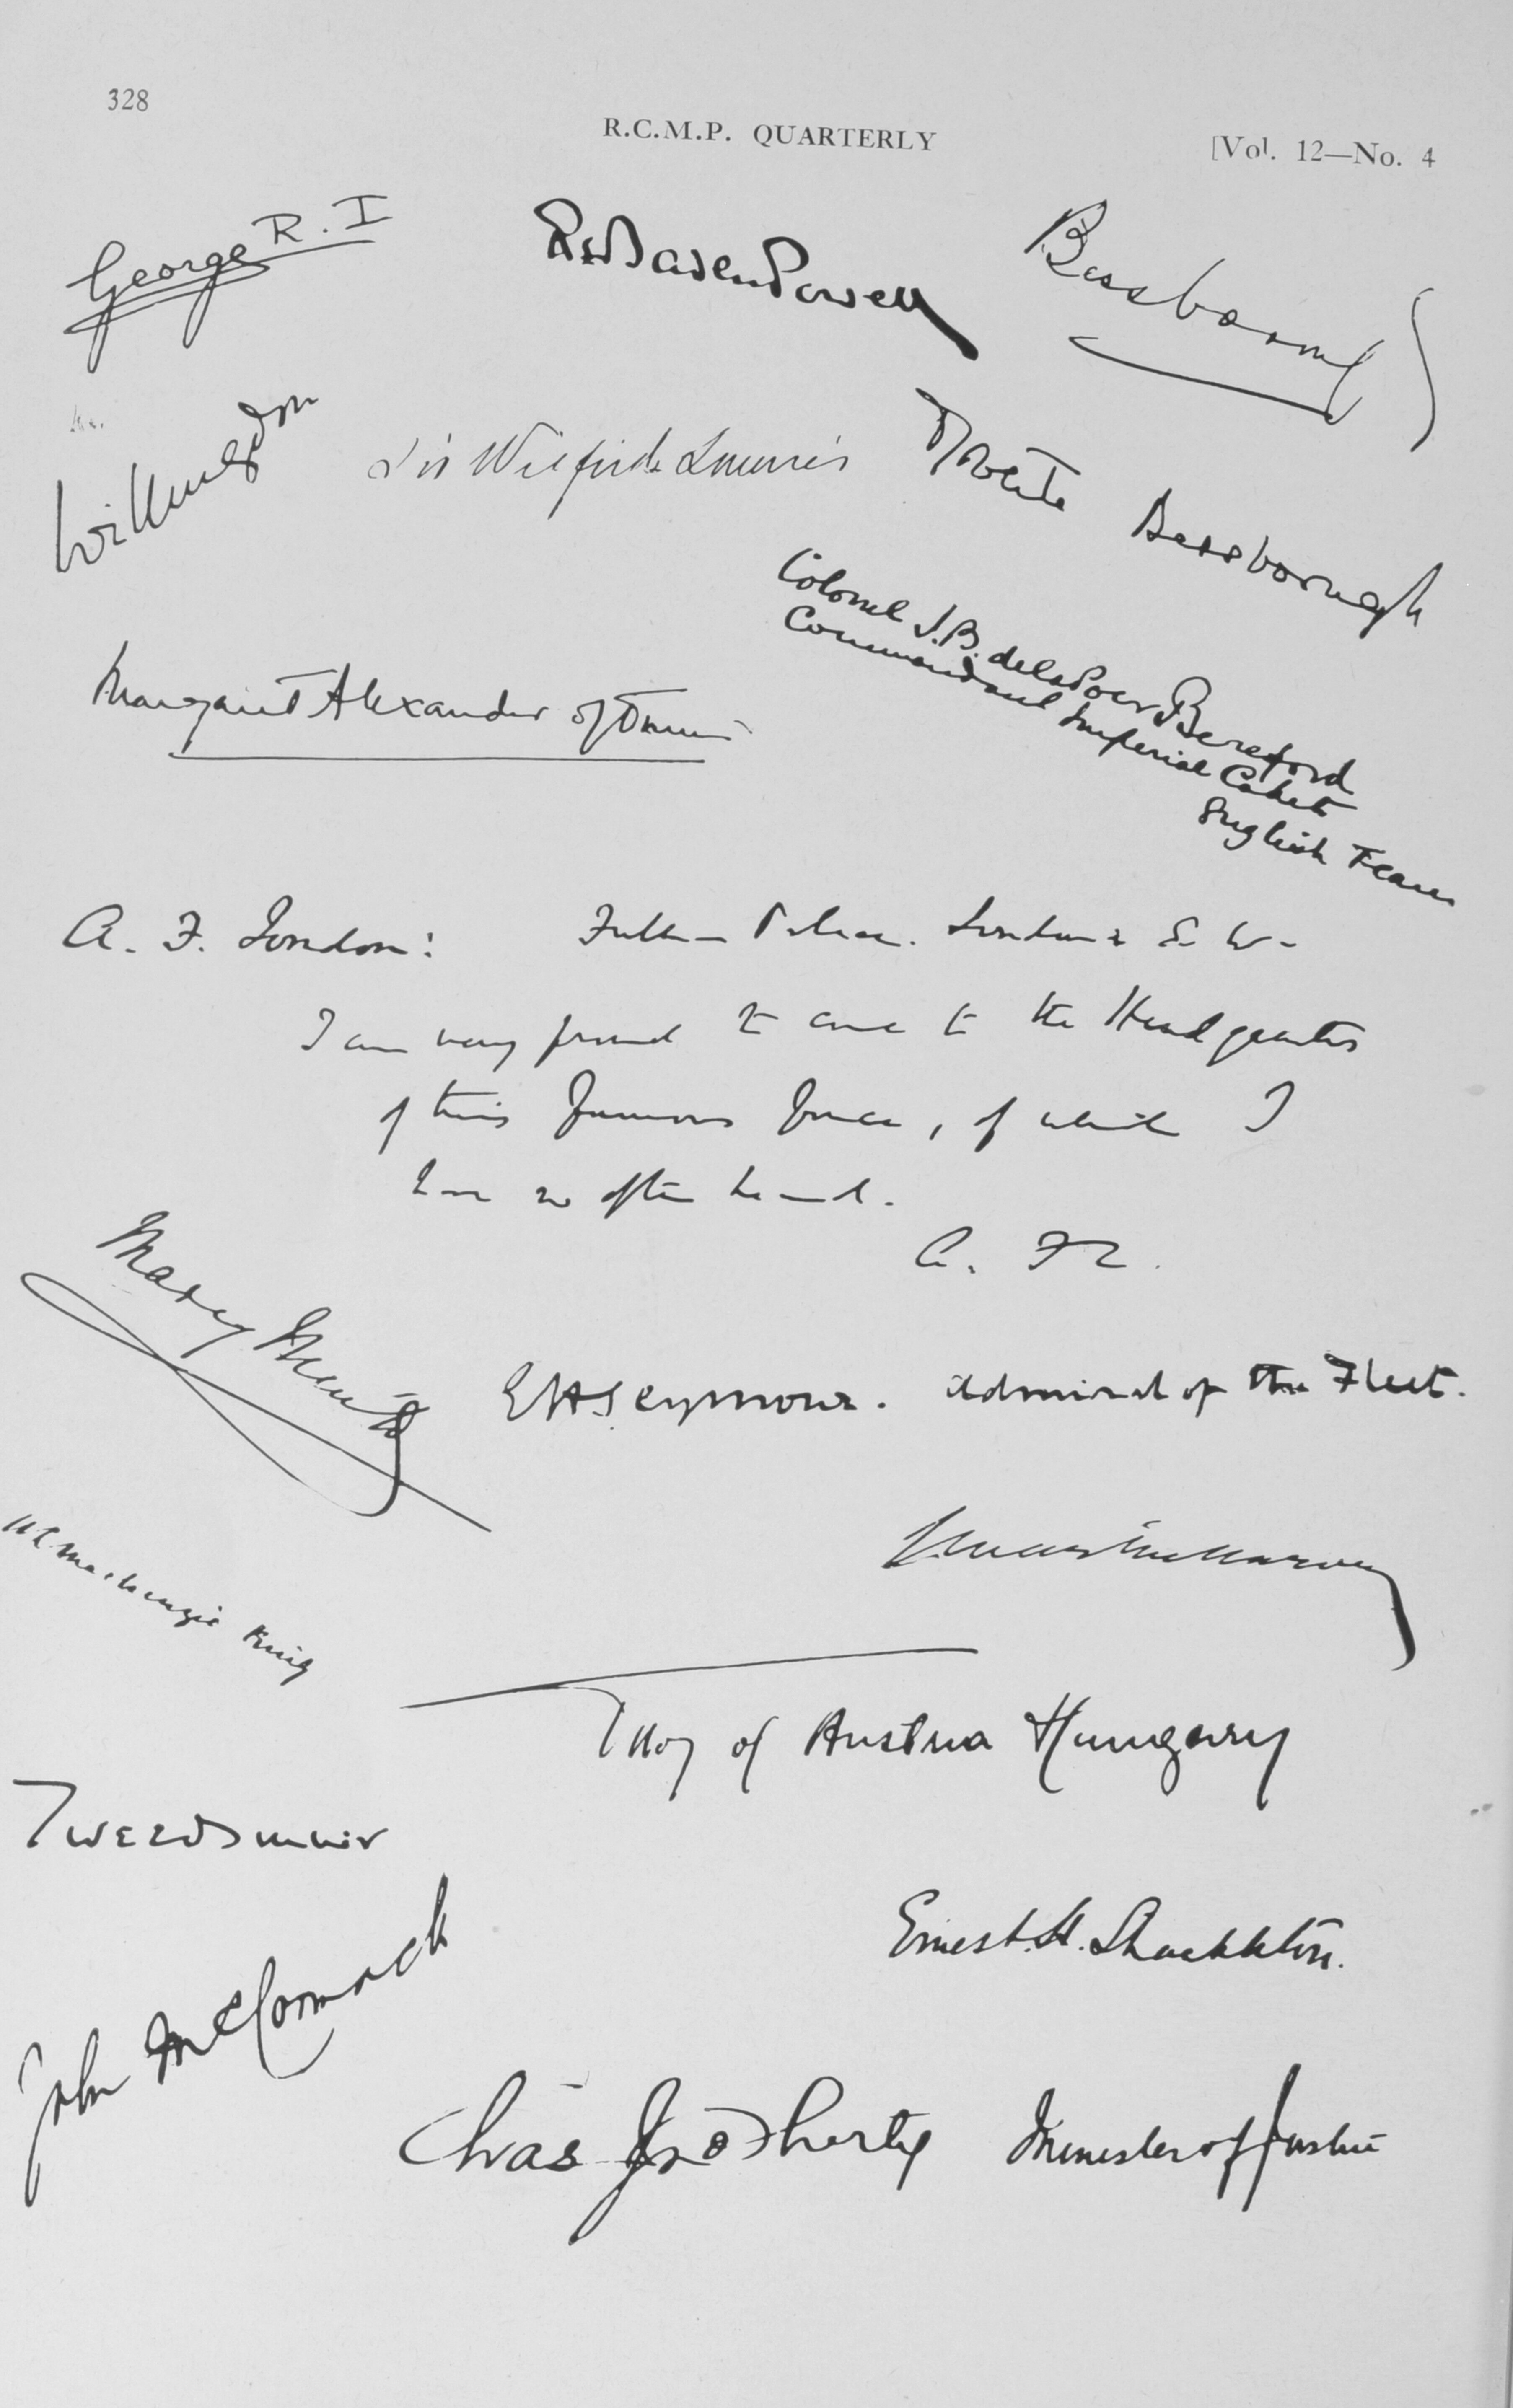 328
R.C.M.P. QUARTERLY
[Vol. 12—No. 4
George R. I
Rs Baden Powell
Bessborough
Willingdon
Sir Wilfrid Laurier
Roberte Bessborough
Colonel J.B. de la Poer Beresford
Commandant Imperial Cadets
English Team
Margaret Alexander of Tunis
A. F. London: Fulham Palace. London S. W.
I am very proud to come to the Headquarters
of this famous force, of which I
have so often heard.
A. F. L.
Mary Minto
EHSeymour. Admiral of the Fleet.
WL Mackenzie King
of Austria Hungary
Tweedsmuir
Ernest. H. Shackleton.
John McCormack
Chas J Doherty Minister of Justice